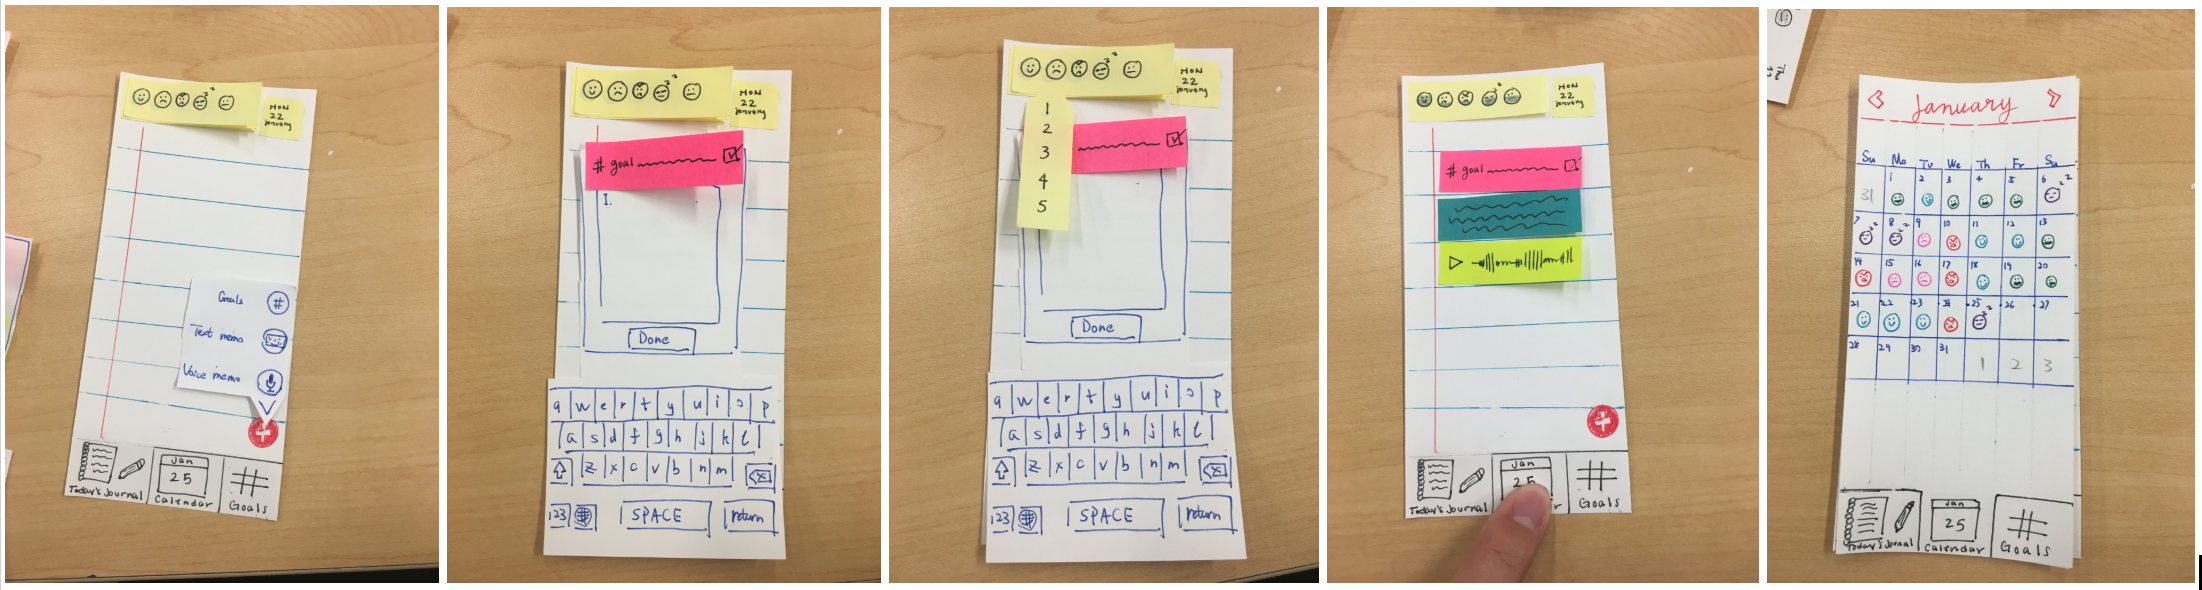 MON
22
January
Goals
#
Text memo
Voice memo
Jan
25
Today's Journal
Calendar
Goals
MON
22
January
# goal
I.
Done
q w e r t y u i o p
a s d f g h j k l
z x c v b n m
123
SPACE
return
MON
22
January
1
2
3
4
5
Done
q w e r t y u i o p
a s d f g h j k l
z x c v b n m
123
SPACE
return
MON
22
January
# goal
Jan
25
Today's Journal
r
Goals
January
Su Mo Tu We Th Fr Su
31 1 2 3 4 5 6
7 8 9 10 11 12 13
14 15 16 17 18 19 20
21 22 23 24 25 26 27
28 29 30 31 1 2 3
Jan
25
Today's Journal
Calendar
Goals